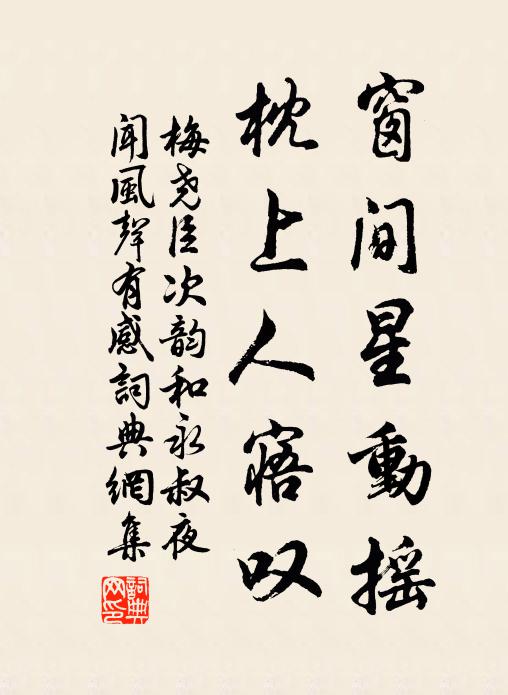 窗间星動摇
枕上人寤叹
梅尧臣次韵和永叔夜
闻風聲有感詞典網集
詞典
网印